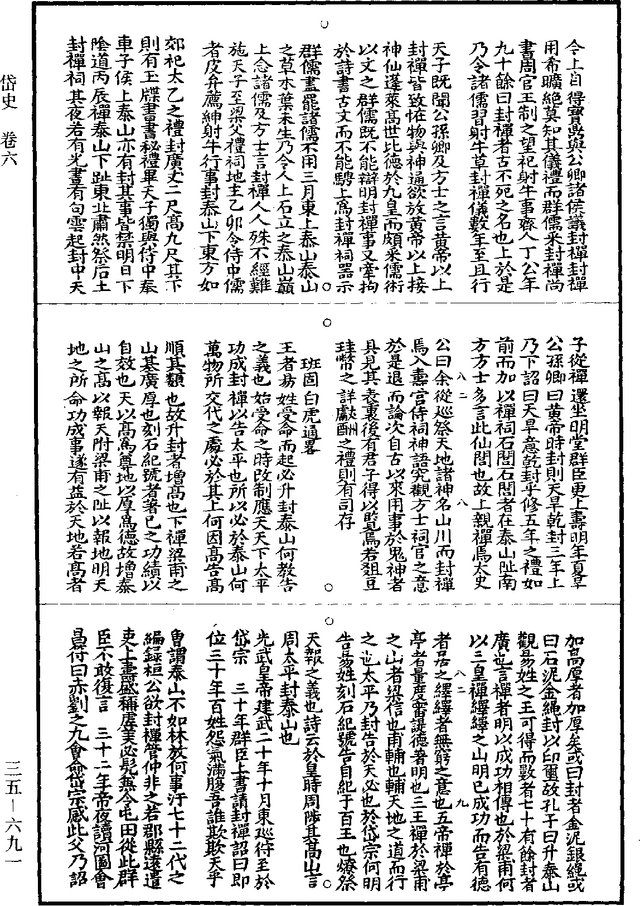 今上自得寶鼎與公卿諸侯議封禪封禪
用希曠絶莫知其儀禮而群儒采封禪尚
書周官王制之望祀射牛事齊人丁公年
九十餘曰封禪者古不死之名也上於是
乃令諸儒習射牛草封禪儀數年至且行
天子既聞公孫卿及方士之言黄帝以上
封禪皆致怪物與神通欲放黄帝以上接
神仙蓬萊高世比德於九皇而頗采儒術
以文之群儒既不能辯明封禪事又牽拘
於詩書古文而不能騁上爲封禪祠器示
群儒盡罷諸儒不用三月東上泰山泰山
之草木葉未生乃令人上石立之泰山巔
上念諸儒及方士言封禪人人殊不經難
施天子至梁父禮祠地主乙卯令侍中儒
者皮弁薦紳射牛行事封泰山下東方如
郊祀太乙之禮封廣丈二尺高九尺其下
則有玉牒書書秘禮畢天子獨與侍中奉
車子侯上泰山亦有封其事皆禁明日下
陰道丙辰禪泰山下趾東北肅然祭后土
封禪祠其夜若有光晝有白雲起封中天
子從禪還坐明堂群臣更上壽明年夏旱
公孫卿曰黄帝時封則天旱乾封三年上
乃下詔曰天旱意乾封乎修五年之禮如
前而加以禪祠石閭石閭者在泰山阯南
方方士多言此仙閭也故上親禪焉太史
公曰余從巡祭天地諸神名山川而封禪
焉入壽宮侍祠神語究觀方士祠官之意
於是退而論次自古以來用事於鬼神者
具見其表裏後有君子得以覽焉若俎豆
珪幣之詳獻酬之禮則有司存
班固白虎通畧
王者易姓受命而起必升封泰山何教告
之義也始受命之時改制應天天下太平
功成封禪以告太平也所以必於泰山何
萬物所交代之處必於其上何因高告高
順其類也故升封者增高也下禪梁甫之
山基廣厚也刻石紀號者著已之功績以
自效也天以高爲尊地以厚爲德故增泰
山之高以報天附梁甫之阯以報地明天
地之所命功成事遂有益於天地若高者
加高厚者加厚矣或曰封者金泥銀繩或
曰石泥金繩封以印璽故孔子曰升泰山
觀易姓之王可得而數者七十有餘封者
廣也言禪者明以成功相傳也於梁甫何
以三皇禪繹繹之山明已成功而告有德
者居之繹繹者無窮之意也五帝禪於亭
亭者量度審諟德著明也三王禪於梁甫
之山者梁信也甫輔也輔天地之道而行
之也太平乃封告於天必也於岱宗何明
告易姓刻石紀號告自紀于百王也燎祭
天報之義也詩云於皇時周陟其高山言
周太平封泰山也
光武皇帝建武二十年十月東巡狩至於
岱宗 三十年群臣上書請封禪詔曰即
位三十年百姓怨氣滿腹吾誰欺欺天乎
曾謂泰山不如林放何事汙七十二代之
編録桓公欲封禪管仲非之若郡縣遠遣
吏上壽盛稱虛美必髡無令屯田從此群
臣不敢復言 三十二年帝夜讀河圖會
昌符曰赤劉之九會命岱宗感此父乃詔
岱史 卷六
三五—六九一